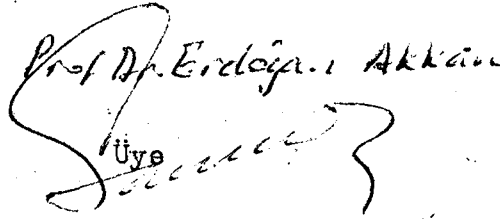 Prof Dr. Erdoğan Akkan
Üye